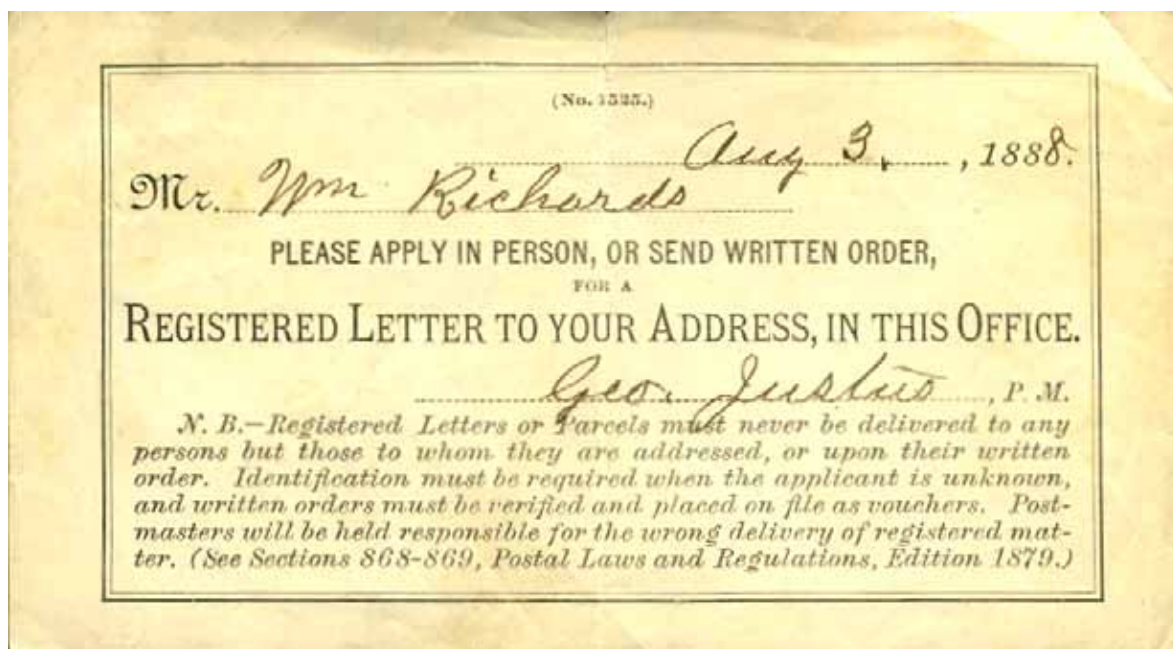 (No. 1525.)
Aug 3, , 1888.
Mr. Wm Richards
PLEASE APPLY IN PERSON, OR SEND WRITTEN ORDER,
FOR A
REGISTERED LETTER TO YOUR ADDRESS, IN THIS OFFICE.
Geo. Justus, P. M.
N. B.—Registered Letters or Parcels must never be delivered to any
persons but those to whom they are addressed, or upon their written
order. Identification must be required when the applicant is unknown,
and written orders must be verified and placed on file as vouchers. Post-
masters will be held responsible for the wrong delivery of registered mat-
ter. (See Sections 868-869, Postal Laws and Regulations, Edition 1879.)